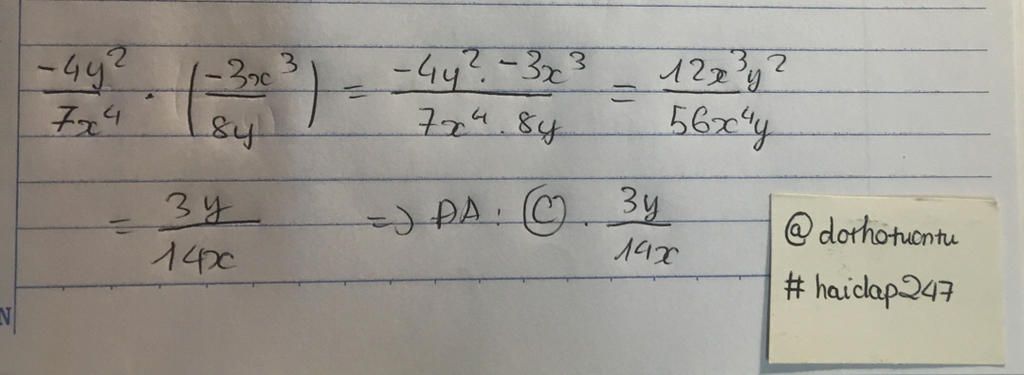 -4y²/7x⁴ · (-3x³/8y) = -4y² · -3x³/7x⁴ · 8y = 12x³y²/56x⁴y
= 3y/14x => ĐA : Ⓒ · 3y/14x
@dorhotuontu
# haidap247
N